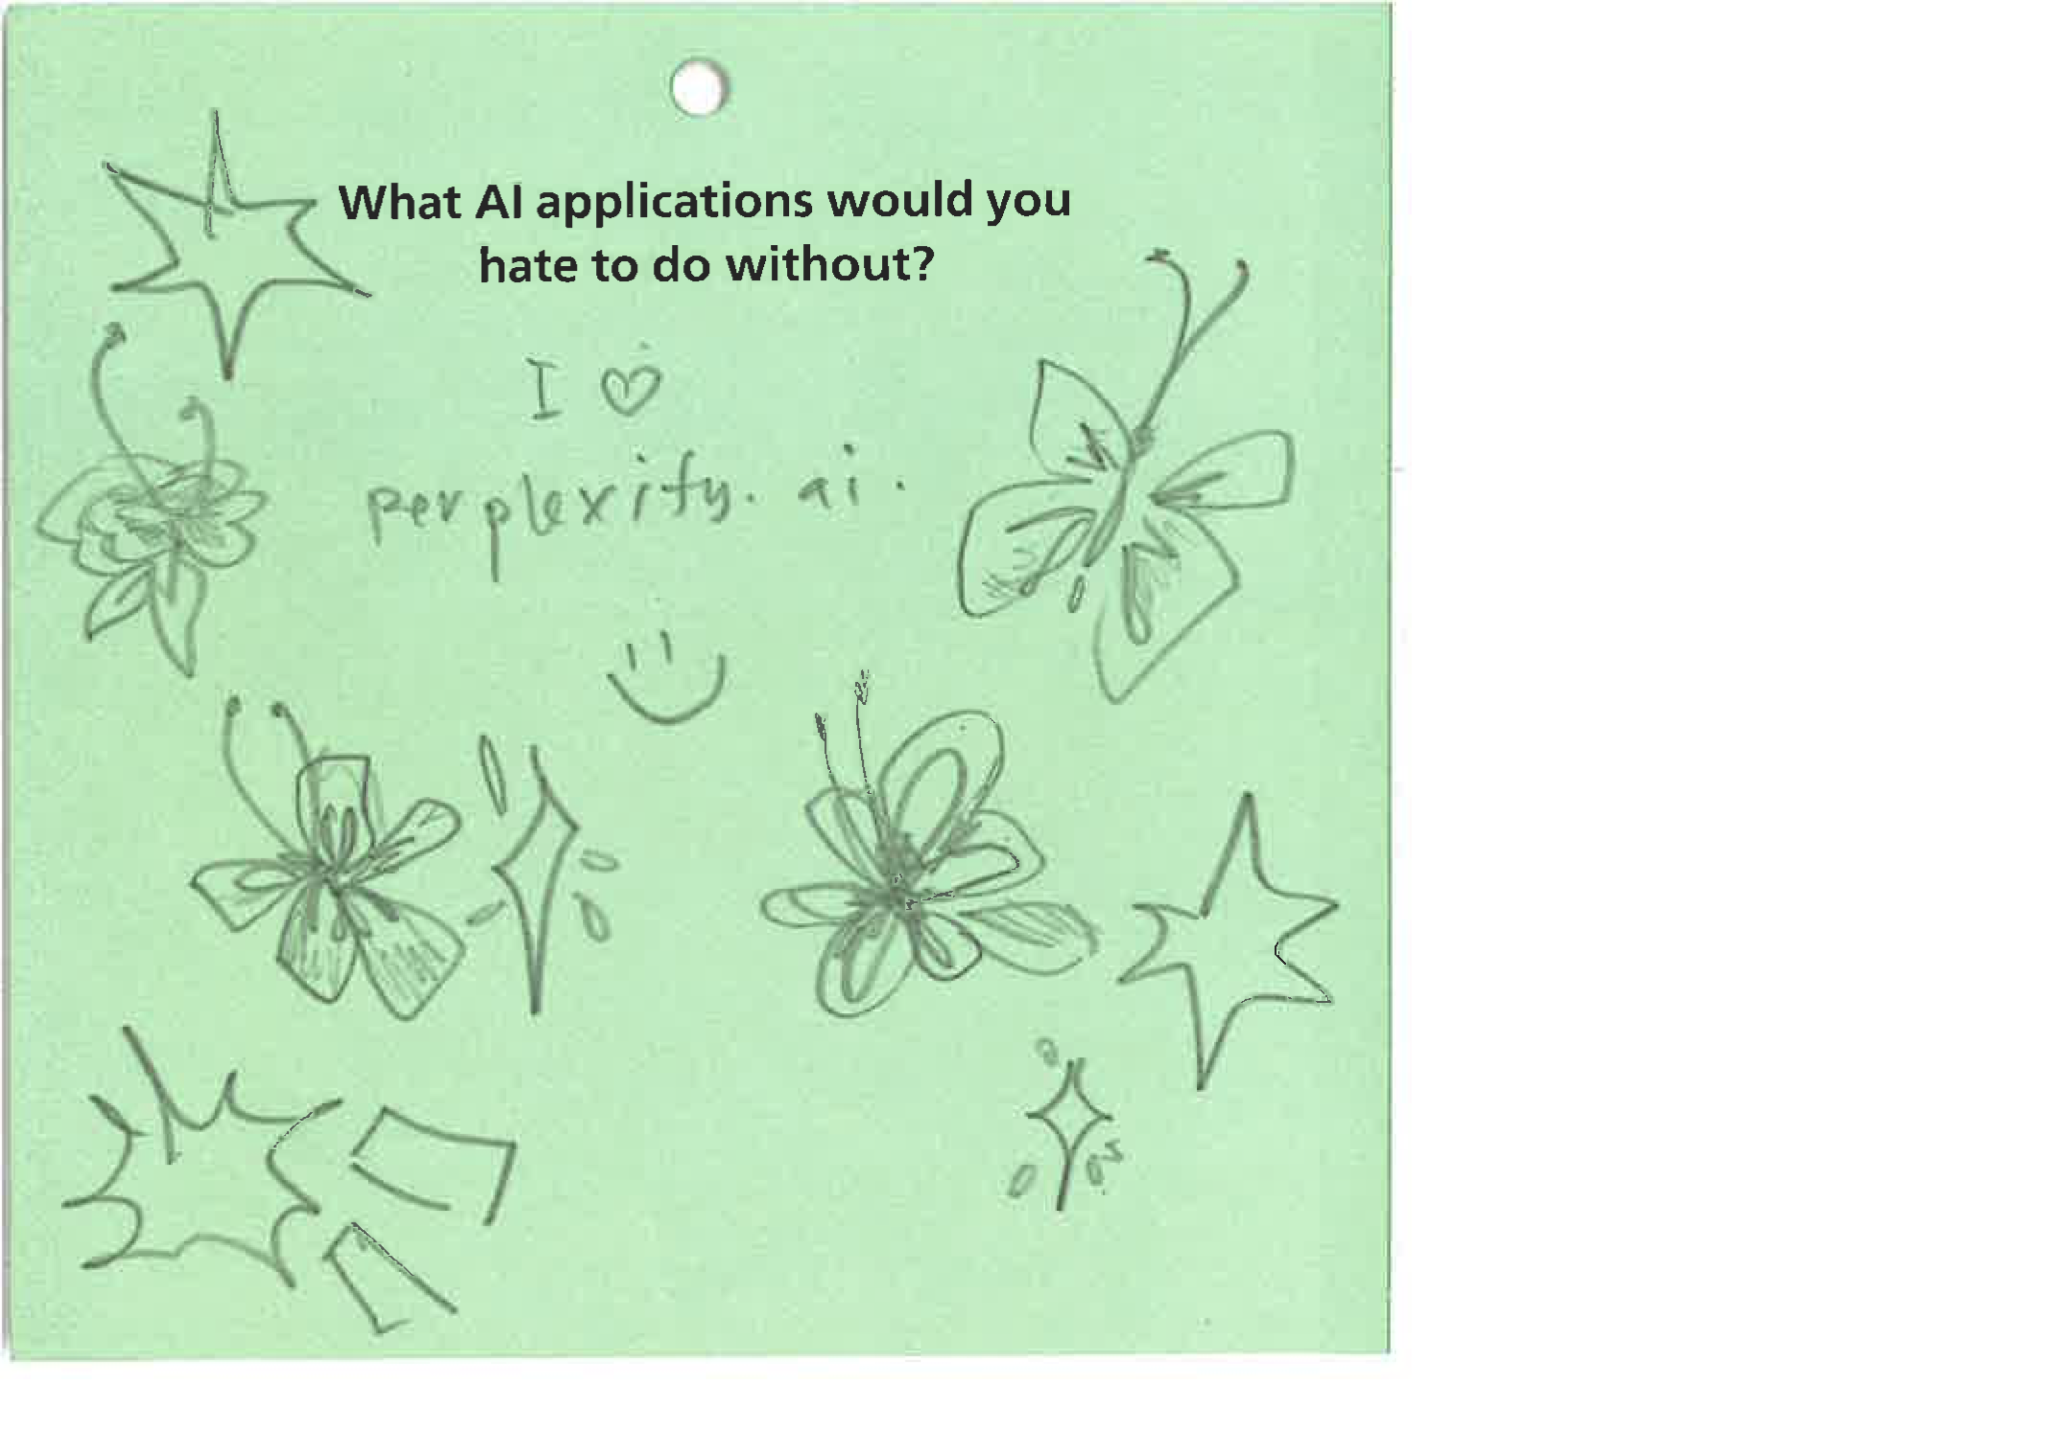 What AI applications would you
hate to do without?
I ♡
perplexity. ai.